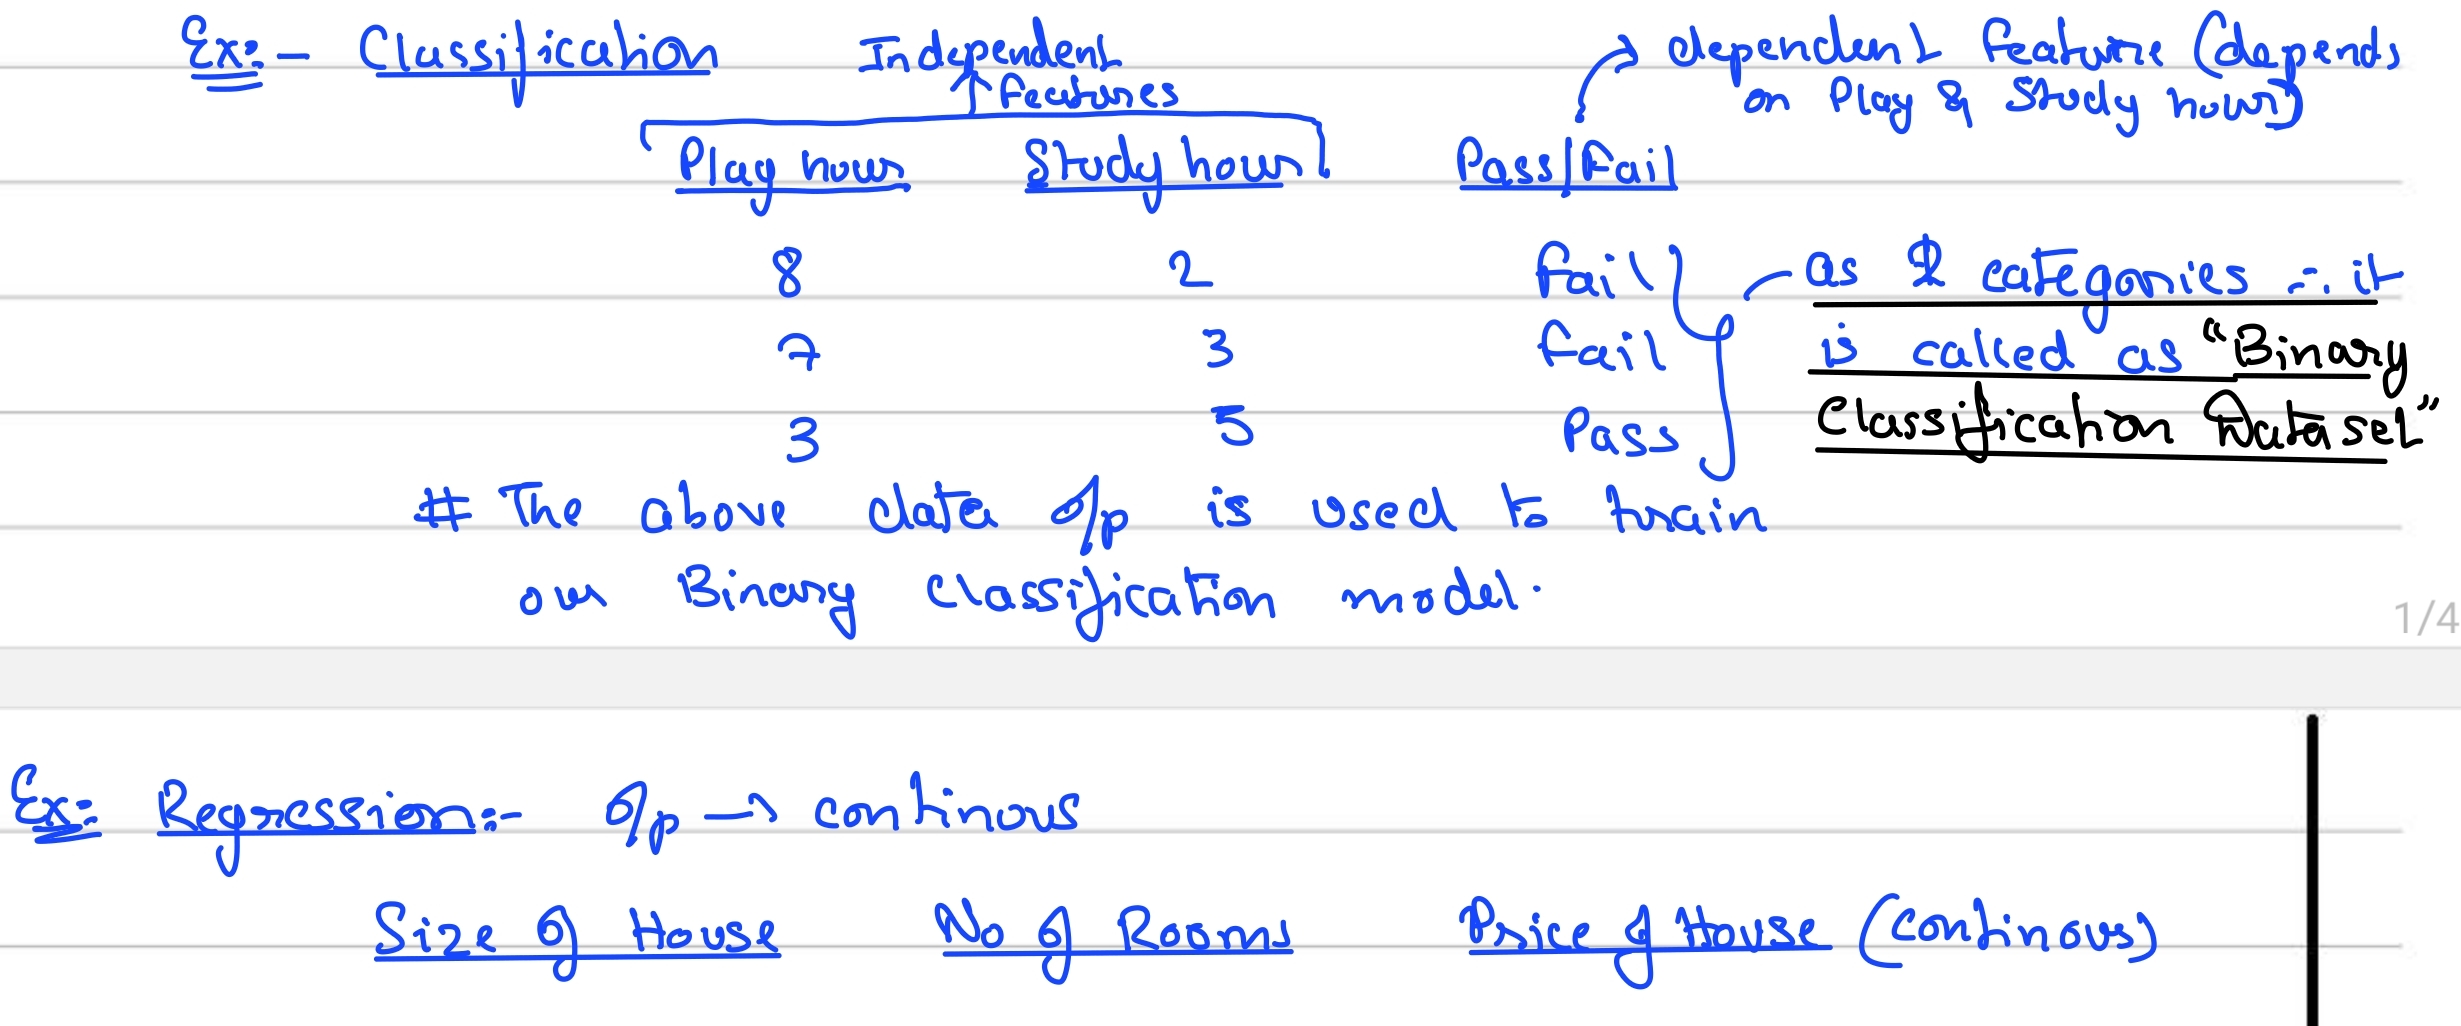 Ex:- Classification
Independent features
dependent feature (depends
on Play & Study hour)
Play hour Study hour Pass/Fail
8 2 fail
7 3 fail
3 5 Pass
as 2 categories ∴ it
is called as "Binary
Classification Dataset"
# The above data o/p is used to train
our Binary classification model.
1/4
Ex: Regression:- o/p → continous
Size of House No of Rooms Price of House (continous)